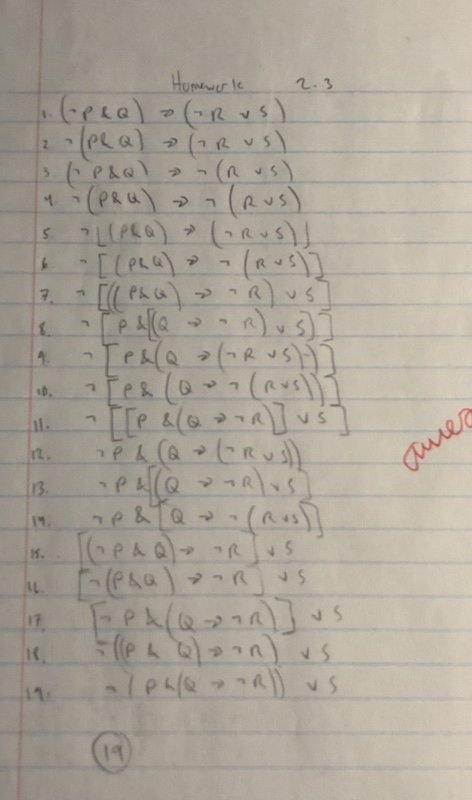 Homework 2.3
1. (¬P&Q) → (¬R ∨ S)
2. ¬(P&Q) → (¬R ∨ S)
3. (¬P&Q) → ¬(R ∨ S)
4. ¬(P&Q) → ¬(R ∨ S)
5. ¬[(P&Q) → (¬R ∨ S)]
6. ¬[(P&Q) → ¬(R ∨ S)]
7. ¬[((P&Q) → ¬R) ∨ S]
8. ¬[P&[(Q → ¬R) ∨ S)]
9. ¬[P&(Q → (¬R ∨ S))]
10. ¬[P&(Q → ¬(R∨S))]
11. ¬[[P&(Q → ¬R)] ∨ S]
12. ¬P&(Q → (¬R ∨ S))
13. ¬P&[(Q → ¬R) ∨ S]
14. ¬P&[Q → ¬(R∨S)]
15. [(¬P&Q) → ¬R] ∨ S
16. [¬(P&Q) → ¬R] ∨ S
17. [¬P&(Q → ¬R)] ∨ S
18. ¬((P&Q) → ¬R) ∨ S
19. ¬(P&(Q → ¬R)) ∨ S
19